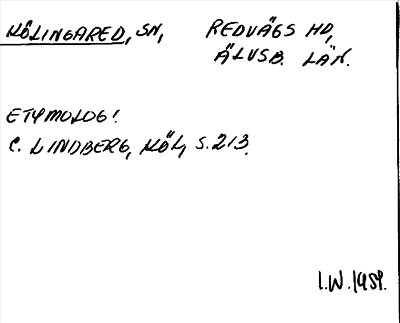 KÖLINGARED, SN, REDVÄGS HD,
ÄLVSB. LÄN.
ETYMOLOG!
C. LINDBERG, KÖL, S. 213.
I.W. 1951.